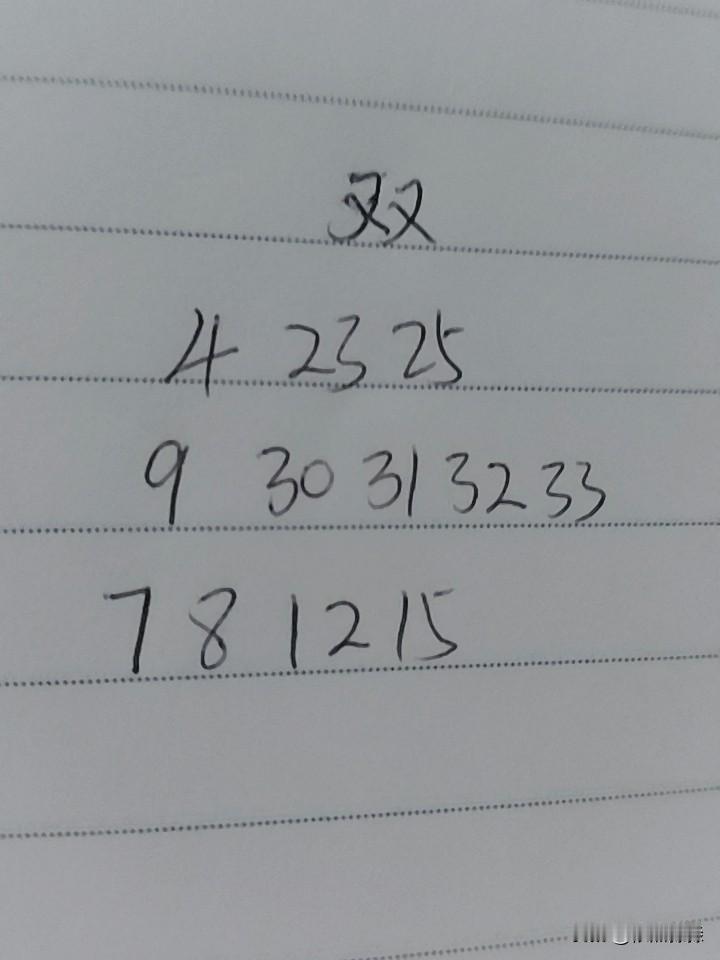 双
4 23 25
9 30 31 32 33
7 8 12 15